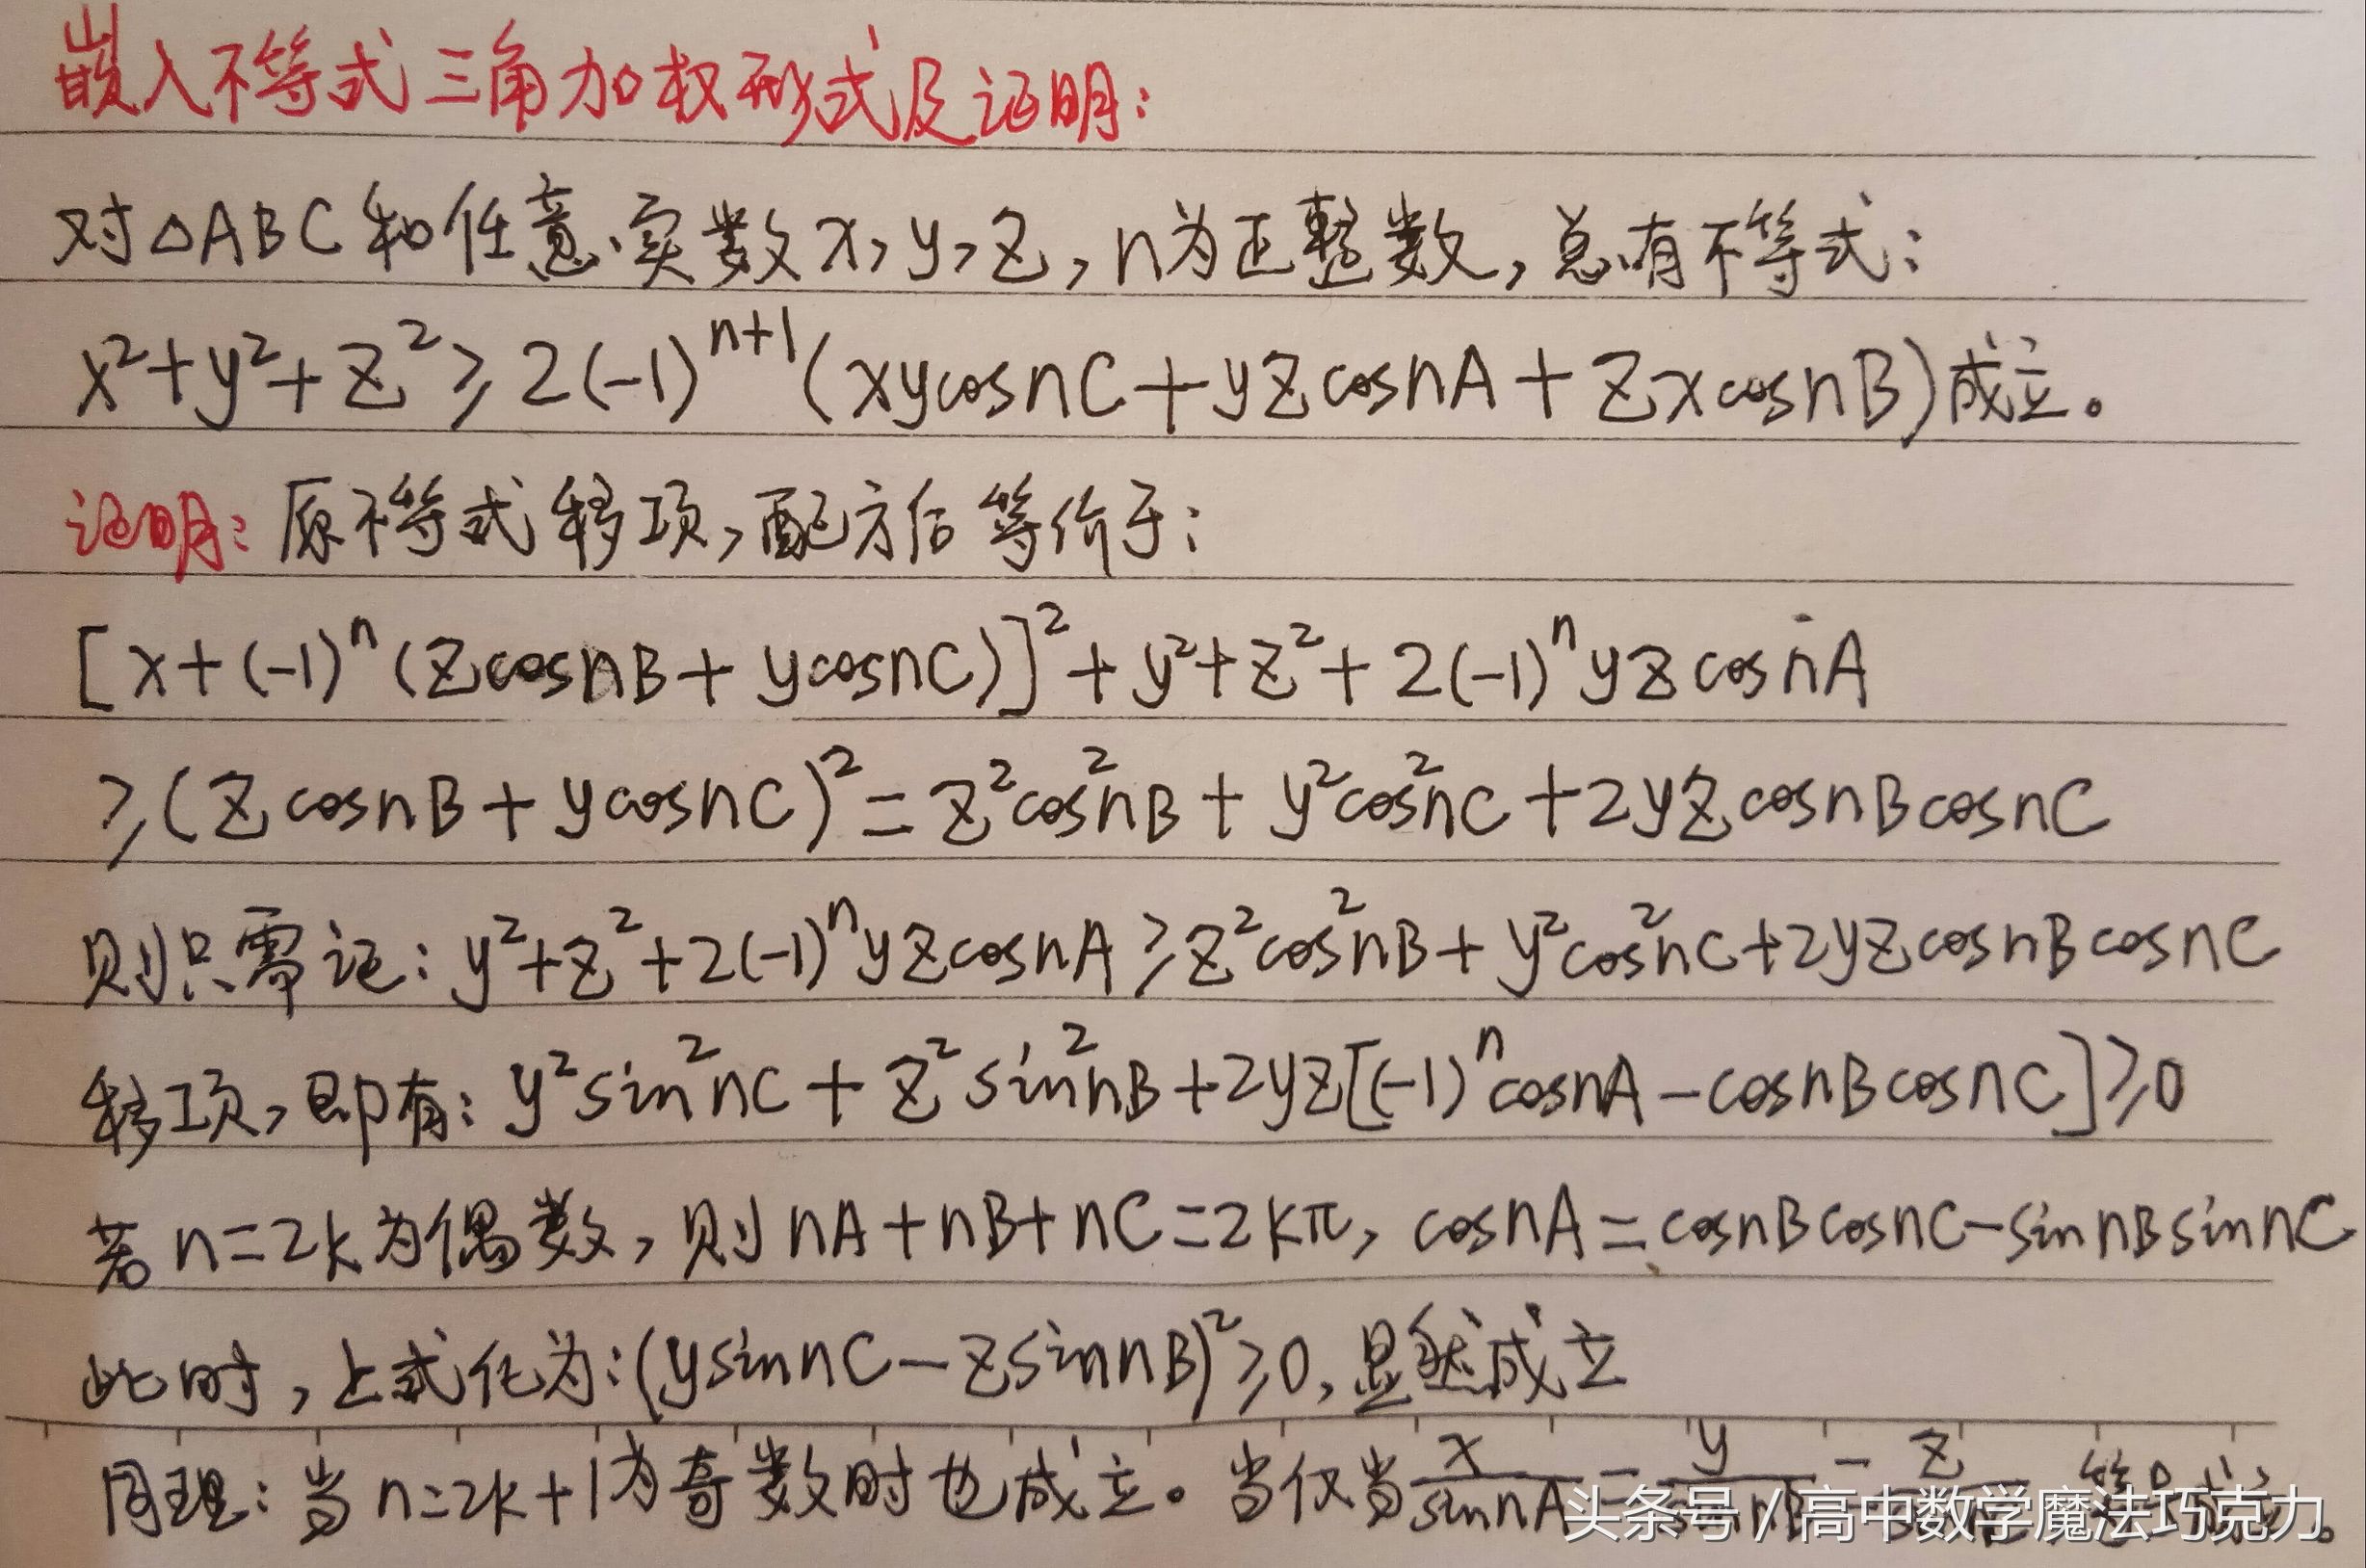 嵌入不等式三角加权形式及证明:
对△ABC和任意实数x,y,z,n为正整数,总有不等式:
x²+y²+z²≥2(-1)^{n+1}(xycosnC+yzcosnA+zxcosnB)成立。
证明:原不等式移项,配方后等价于:
[x+(-1)^n(zcosnB+ycosnC)]²+y²+z²+2(-1)^n yzcosnA
≥(zcosnB+ycosnC)²=z²cos²nB+y²cos²nC+2yzcosnBcosnC
则只需证:y²+z²+2(-1)^n yzcosnA≥z²cos²nB+y²cos²nC+2yzcosnBcosnC
移项,即有:y²sin²nC+z²sin²nB+2yz[(-1)^n cosnA-cosnBcosnC]≥0
若n=2k为偶数,则nA+nB+nC=2kπ,cosnA=cosnBcosnC-sinnBsinnC
此时,上式化为:(ysinnC-zsinnB)²≥0,显然成立
同理:当n=2k+1为奇数时也成立。当仅当x/sinnA=y/sinnB=z
头条号/高中数学魔法巧克力